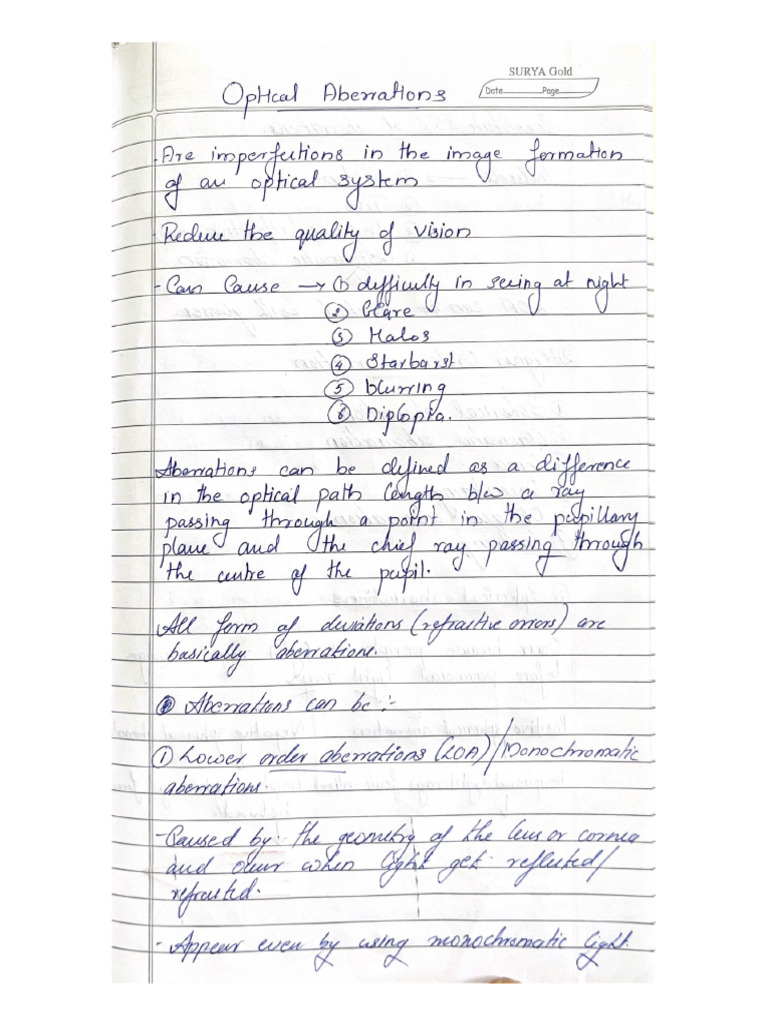 SURYA Gold
Date Page
Optical Aberrations
- Are imperfections in the image formation
of an optical system
- Reduce the quality of vision
- Can Cause → ① difficulty in seeing at night
② Glare
③ Halos
④ Starburst
⑤ blurring
⑥ Diplopia.
Aberrations can be defined as a difference
in the optical path length b/w a ray
passing through a point in the pupillary
plane and the chief ray passing through
the centre of the pupil.
All form of deviations (refractive errors) are
basically aberrations.
Aberrations can be :-
① Lower order aberrations (LOA)/Monochromatic
aberrations.
- Caused by the geometry of the lens or cornea
and occur when light get reflected/
refracted.
- Appear even by using monochromatic light.